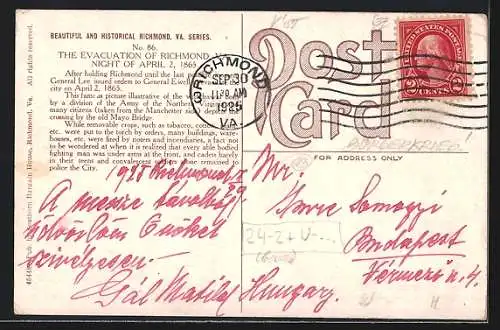 BEAUTIFUL AND HISTORICAL RICHMOND, VA. SERIES.
No. 86.
THE EVACUATION OF RICHMOND, VA.
NIGHT OF APRIL 2, 1865
After holding Richmond until the last
General Lee issued orders to General Ewell
city on April 2, 1865.
This famous picture illustrative of the
by a division of the Army of the Northern
many citizens (taken from the Manchester side) depicts the
crossing of the old Mayo Bridge.
While removable crops, such as tobacco,
etc. were put to the torch by orders, many buildings, ware-
houses, etc. were fired by rioters and incendiaries, a fact not
to be wondered at when it is realized that every able bodied
fighting man was under arms at the front, and cadets barely
in their teens and convalescent soldiers alone remained to
police the City.
Richmond, Va. All rights reserved.
RICHMOND
SEP 30
11 30 AM
1925
VA.
Post
Card
UNITED STATES POSTAGE
2 CENTS 2
BÜRGERKRIEG
FOR ADDRESS ONLY
1925 Richmond
29
A messze távolból
üdvözlöm Önöket
szívélyesen
Gál Matild
Mr.
Imre Somogyi
24-2+U-...
Budapest
Vérmező u. 4.
Hungary.